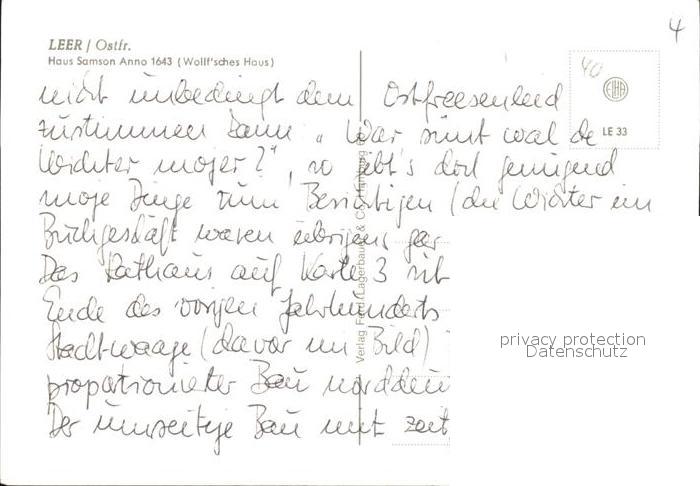 4
LEER / Ostfr.
Haus Samson Anno 1643 (Wolff'sches Haus)
40
LE 33
nicht unbedingt dem Ostfreesenleed
zustimmen kann „War sünt wal de
Wichter mojer?", so gibt's dort genügend
moje Dinge zum Besichtigen (die Wichter im
Buchgeschäft waren übrigens gar
Das Rathaus auf Karte 3 ist
Ende des vorigen Jahrhunderts
Stadtwaage (davor im Bild)
proportionierter Bau norddeu
Der umseitige Bau mit zeit
Verlag Ferd. Lagerbauer & Co. Hamburg
privacy protection
Datenschutz